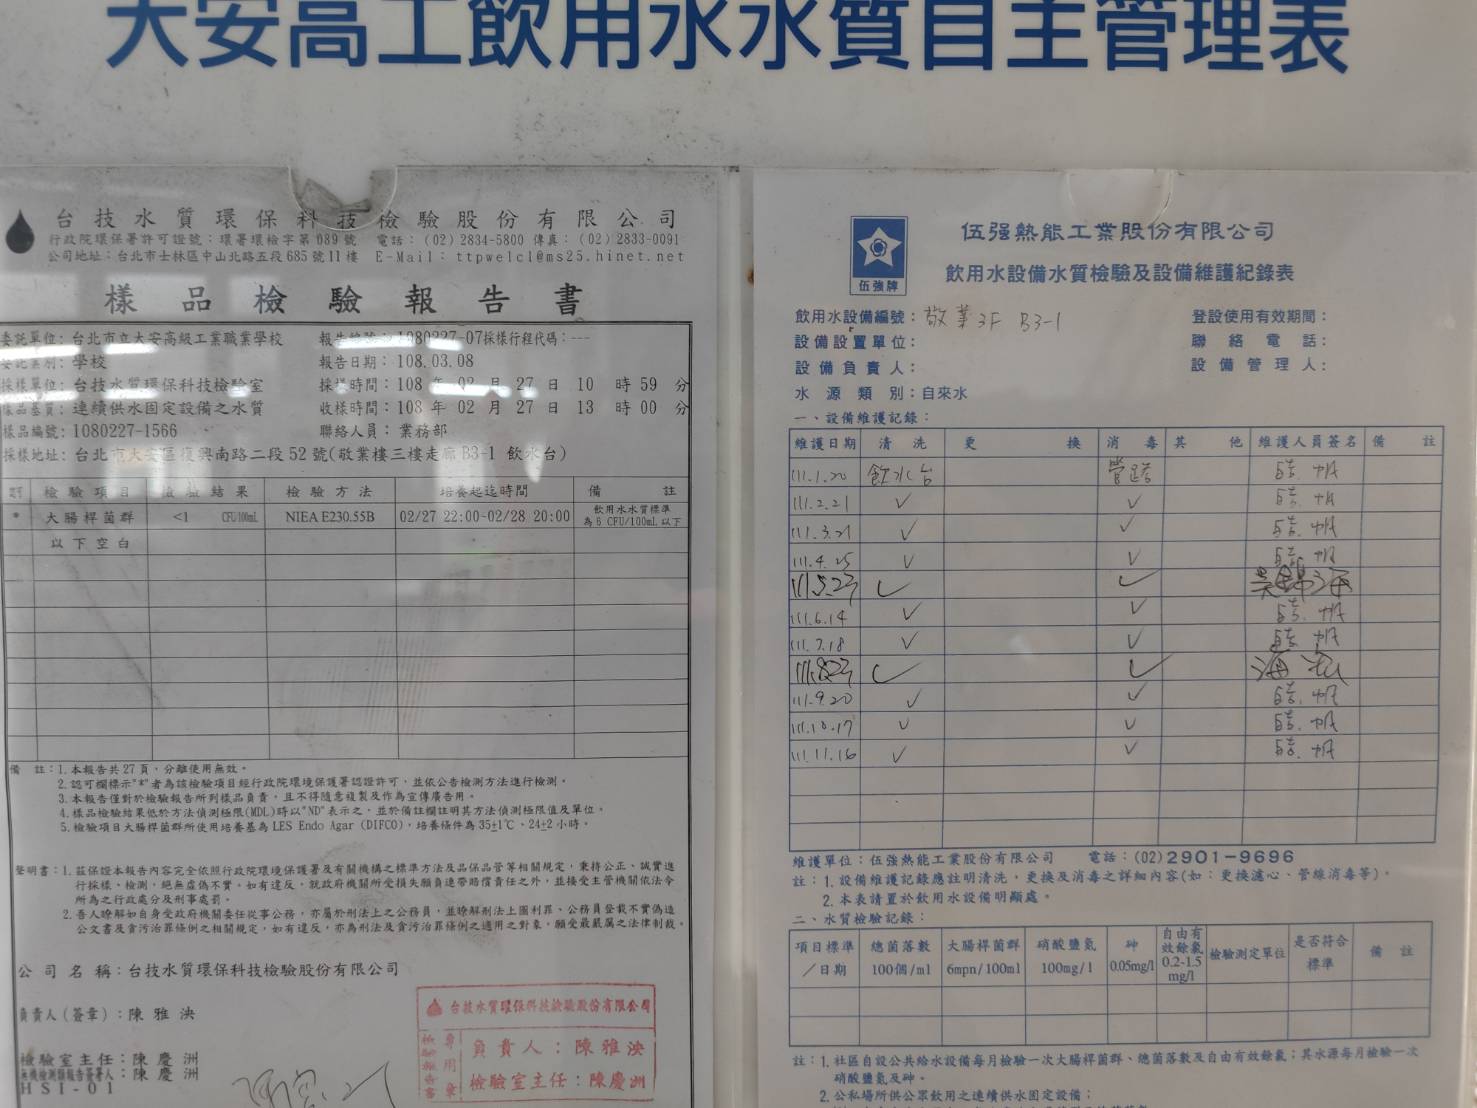 大安高工飲用水水質自主管理表
台技水質環保科技檢驗股份有限公司
行政院環保署許可證號：環署環檢字第089號 電話：(02)2834-5800 傳真：(02)2833-0091
公司地址：台北市士林區中山北路五段685號11樓 E-Mail：ttpwelcl@ms25.hinet.net
樣品檢驗報告書
委託單位：台北市立大安高級工業職業學校 報告編號：1080227-07採樣行程代碼：---
委託業別：學校 報告日期：108.03.08
採樣單位：台技水質環保科技檢驗室 採樣時間：108 年 02 月 27 日 10 時 59 分
樣品基質：連續供水固定設備之水質 收樣時間：108 年 02 月 27 日 13 時 00 分
樣品編號：1080227-1566 聯絡人員：業務部
採樣地址：台北市大安區復興南路二段52號(敬業樓三樓走廊B3-1 飲水台)
檢驗項目 檢驗結果 檢驗方法 培養起迄時間 備註
* 大腸桿菌群 <1 CFU/100mL NIEA E230.55B 02/27 22:00-02/28 20:00 飲用水水質標準
為6 CFU/100mL以下
以下空白
備 註：1.本報告共27頁，分離使用無效。
2.認可欄標示"*"者為該檢驗項目經行政院環境保護署認證許可，並依公告檢測方法進行檢測。
3.本報告僅對於檢驗報告所列樣品負責，且不得隨意複製及作為宣傳廣告用。
4.樣品檢驗結果低於方法偵測極限(MDL)時以"ND"表示之，並於備註欄註明其方法偵測極限值及單位。
5.檢驗項目大腸桿菌群所使用培養基為LES Endo Agar (DIFCO)，培養條件為35±1℃、24±2小時。
聲明書：1.茲保證本報告內容完全依照行政院環境保護署及有關機構之標準方法及品保品管等相關規定，秉持公正、誠實進
行採樣、檢測。絕無虛偽不實，如有違反，就政府機關所受損失願負連帶賠償責任之外，並接受主管機關依法令
所為之行政處分及刑事處罰。
2.吾人瞭解如自身受政府機關委任從事公務，亦屬於刑法上之公務員，並瞭解刑法上圖利罪、公務員登載不實偽造
公文書及貪污治罪條例之相關規定，如有違反，亦為刑法及貪污治罪條例之適用之對象，願受最嚴厲之法律制裁。
公司名稱：台技水質環保科技檢驗股份有限公司
負責人(簽章)：陳雅泱
檢驗室主任：陳慶洲
無機檢測類報告簽署人：陳慶洲
HSI-01
台技水質環保科技檢驗股份有限公司
檢驗報告書
專用章
負責人：陳雅泱
檢驗室主任：陳慶洲
伍強牌
伍强熱能工業股份有限公司
飲用水設備水質檢驗及設備維護紀錄表
飲用水設備編號：敬業3F B3-1 登設使用有效期間：
設備設置單位： 聯絡電話：
設備負責人： 設備管理人：
水源類別：自來水
一、設備維護記錄：
維護日期 清洗 更換 消毒 其他 維護人員簽名 備註
111.1.20 飲水台 管路
111.2.21 ✓ ✓
111.3.21 ✓ ✓
111.4.25 ✓ ✓
111.5.23 ✓ ✓
111.6.14 ✓ ✓
111.7.18 ✓ ✓
111.8.23 ✓ ✓
111.9.20 ✓ ✓
111.10.17 ✓ ✓
111.11.16 ✓ ✓
維護單位：伍強熱能工業股份有限公司 電話：(02)2901-9696
註：1.設備維護記錄應註明清洗，更換及消毒之詳細內容(如：更換濾心、管線消毒等)。
2.本表請置於飲用水設備明顯處。
二、水質檢驗記錄：
項目標準／日期 總菌落數100個/ml 大腸桿菌群6mpn/100ml 硝酸鹽氮100mg/l 砷0.05mg/l 自由有效餘氯0.2-1.5mg/l 檢驗測定單位 是否符合標準 備註
註：1.社區自設公共給水設備每月檢驗一次大腸桿菌群、總菌落數及自由有效餘氯；其水源每月檢驗一次
硝酸鹽氮及砷。
2.公私場所供公眾飲用之連續供水固定設備：